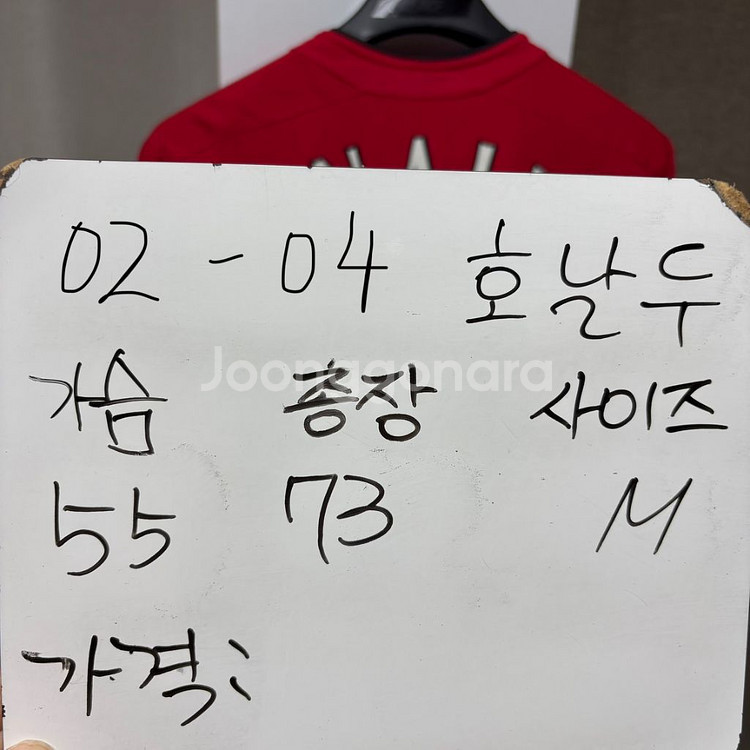 02 - 04 호날두
Joonggonara
가슴 총장 사이즈
55 73 M
가격: